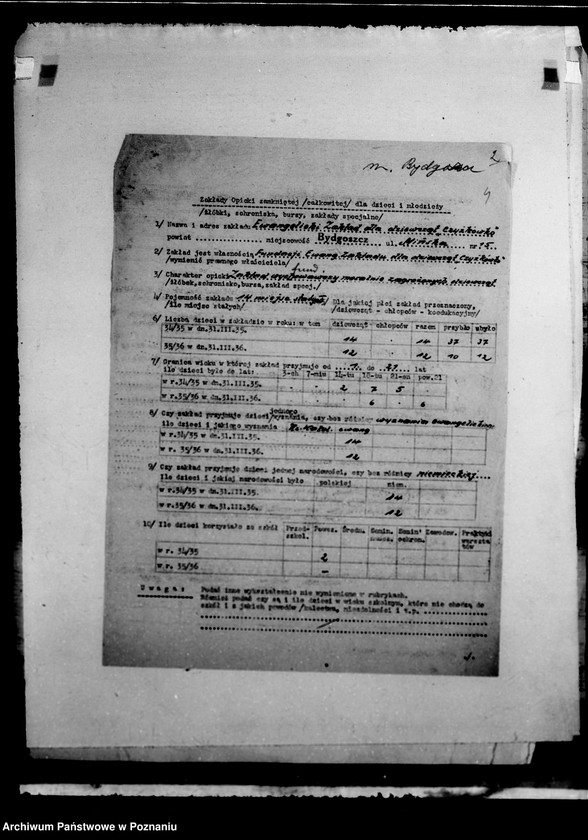 2
m. Bydgoszcz
4
Zakłady Opieki zamkniętej /całkowitej/ dla dzieci i młodzieży
/żłóbki, schroniska, bursy, zakłady specjalne/
1/ Nazwa i adres zakładu Ewangelicki Zakład dla dziewcząt Czyżkówko
powiat ............ miejscowość Bydgoszcz... ul. Mińska nr 5.
2/ Zakład jest własnością fundacji Ewang Zakładu dla dziewcząt
/wymienić prawnego właściciela/ fund.
3/ Charakter opieki Zakład wychowawczy moralnie zagrożonych dziewcząt
/żłóbek, schronisko, bursa, zakład spec./
4/ Pojemność zakładu 14 miejsc stałych Dla jakiej płci zakład przeznaczony,
/ile miejsc stałych/ /dziewcząt - chłopców - koedukacyjny/
6/ Liczba dzieci w zakładzie w roku: w tem dziewcząt chłopców razem przybyło ubyło
34/35 w dn.31.III.35. 14 - 14 37 37
35/36 w dn.31.III.36. 12 - 12 10 12
7/ Granica wieku w której zakład przyjmuje od ... do 21 lat
ile dzieci było do lat: 3-ch 7-miu 14-tu 18-tu 21-en pow.21
w r.34/35 w dn.31.III.35. - - 2 7 5 -
w r.35/36 w dn.31.III.36. 6 - 6
8/ Czy zakład przyjmuje dzieci jednego /wyznania, czy bez różnicy wyznania ewangelickie
ile dzieci i jakiego wyznania ewang
w r.34/35 w dn.31.III.35. 14
w r. 35/36 w dn.31.III.36. 12
9/ Czy zakład przyjmuje dzieci jednej narodowości, czy bez różnicy niemieckiej....
Ile dzieci i jakiej narodowości było polskiej niem.
w r.34/35 w dn.31.III.35. 14
w r.35/36 w dn.31.III.36. 12
10/ Ile dzieci korzystało ze szkół Przed-szkol. Powsz. Średn. Semin. naucz. Semin. ochron. Zawodow. Praktyki warszta tów
w r. 34/35 2
w r. 35/36 -
Uwaga: Podać inne wykształcenie nie wymienione w rubrykach.
Również podać czy są i ile dzieci w wieku szkolnym, które nie chodzą do
szkół i z jakich powodów /kalectwa, niezdolności i t.p.
Archiwum Państwowe w Poznaniu